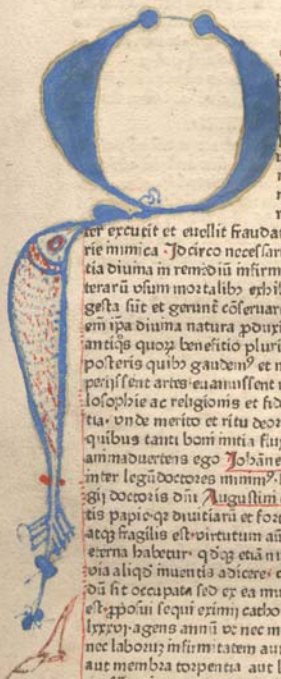 ter excutit et euellit fraudan
rie inimica Idcirco necessar
tia diuina in remediū infirm
terarū vsum mortalib᷒ exhib
gesta sūt et gerunt cōseruar
em ip̄a diuina natura ꝓduxi
antiq̄s quoꝝ benefitio pluri
posteris quib᷒ gaudem᷒ et n
perijssent artes euanuissent
losophie ac religionis et fid
tia· vnde merito et ritu deor
quibus tanti boni initia flux
animaduertens ego Johāne
inter legū doctores minim᷒
gij doctoris dn̄i Augustini
tis papie·qꝛ diuitiarū et fort
atqꝫ fragilis est·virtutum aū
eterna habetur· etiā n
via aliqd̓ inuentis adicere·
dū sit occupata sed ex ea mu
est·ꝓposui sequi eximij catho
lxxxvi·agens annū vt nec m
nec laboriꝫ infirmitatem aut
aut membra torpentia aut l